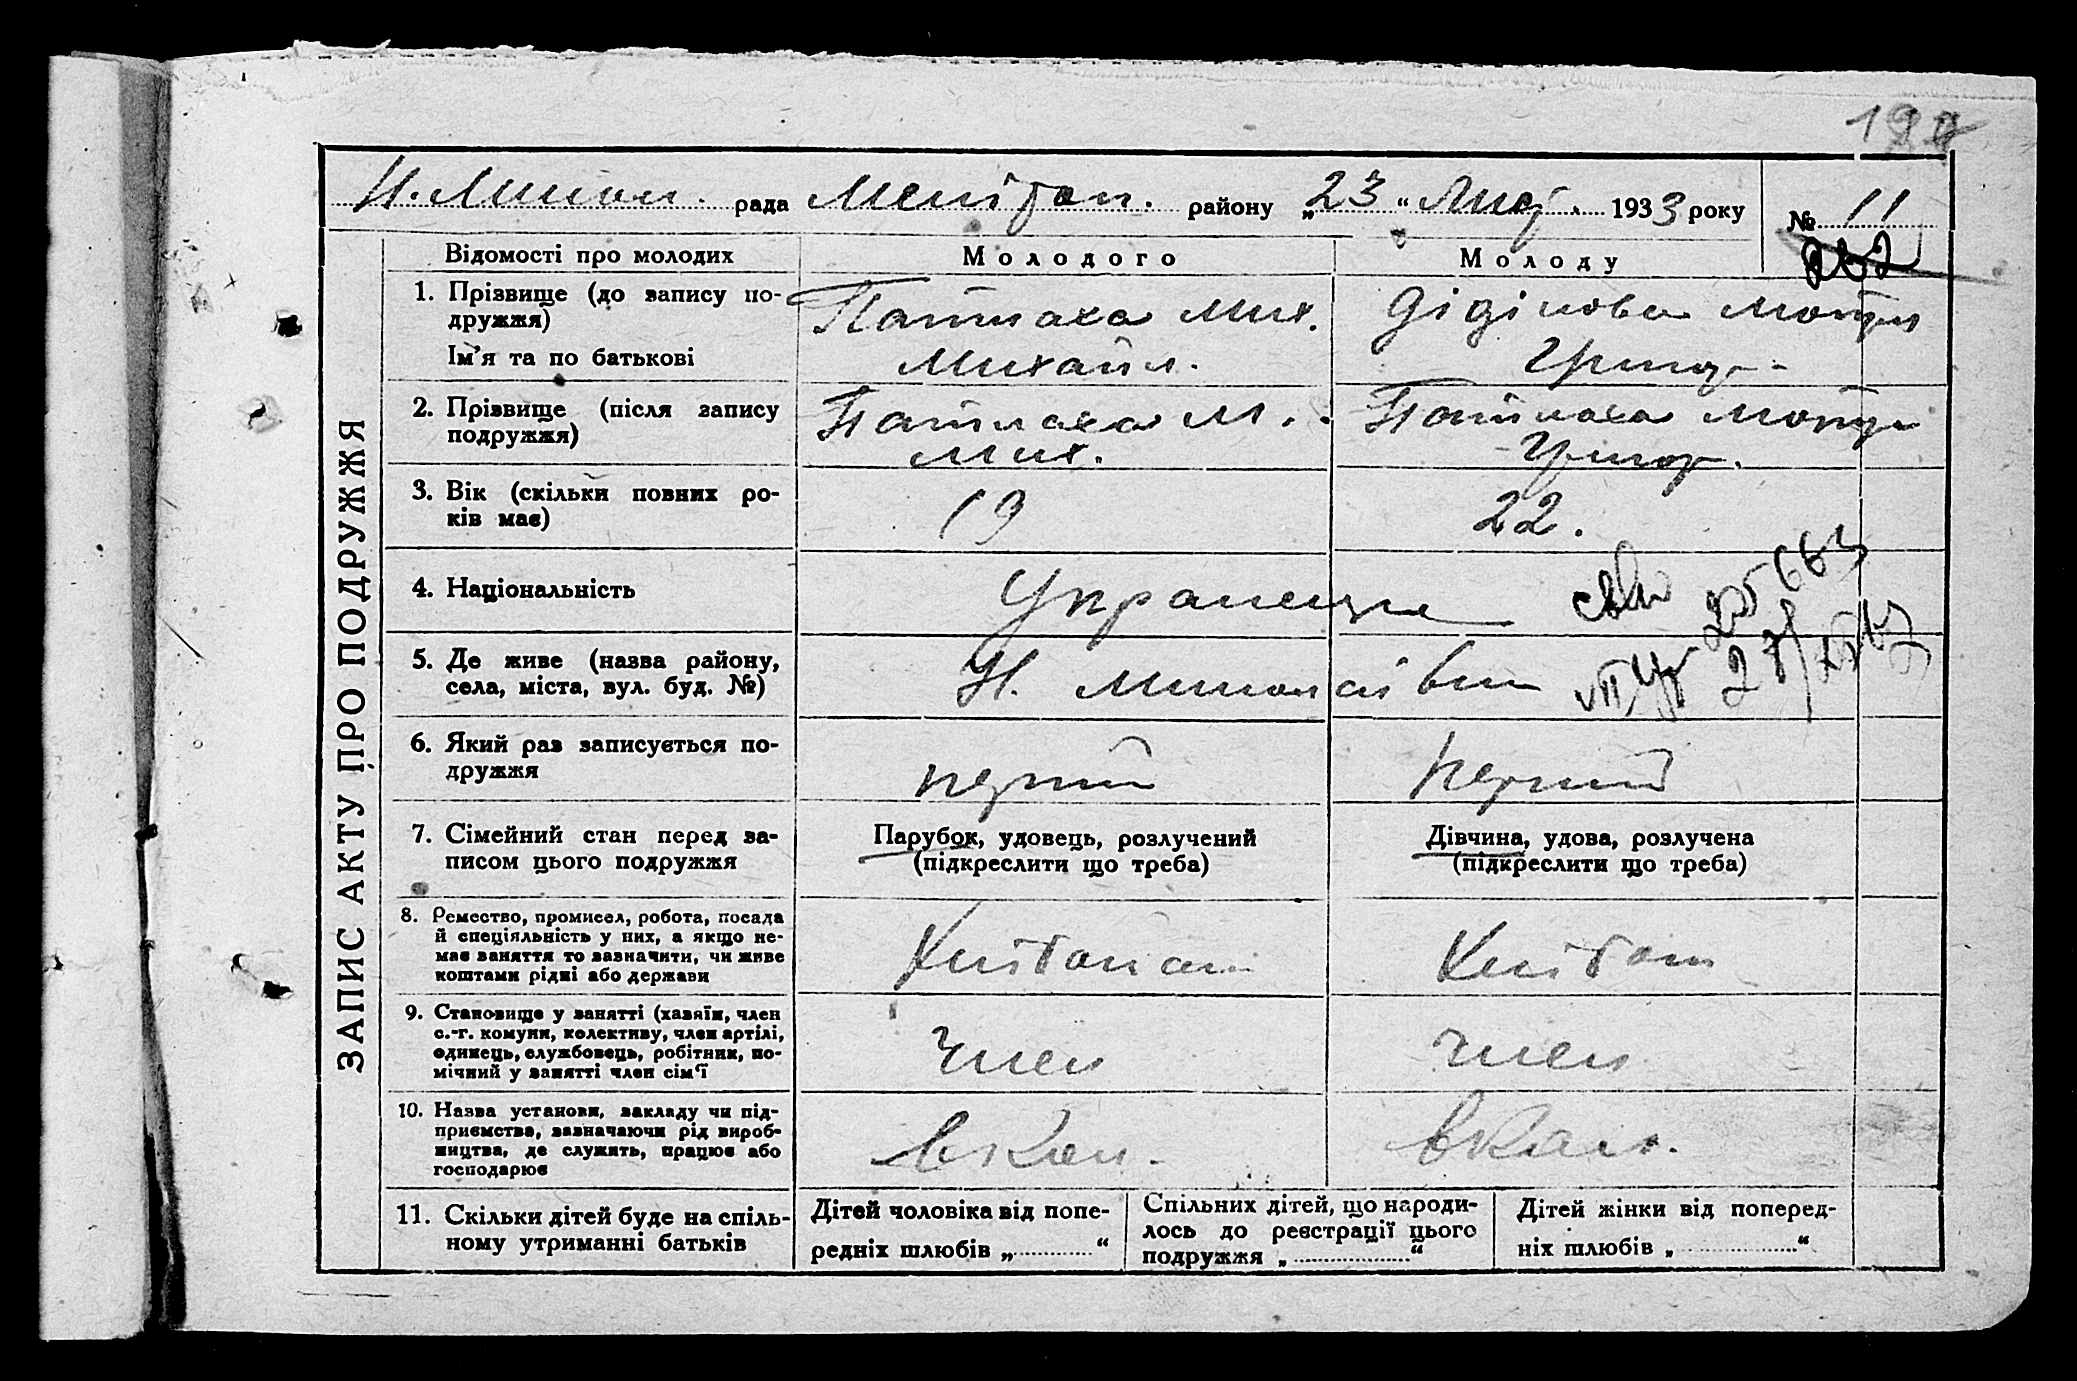 Н. Микол. рада Мелітоп. району „23“ Лист. 1933 року № 11
ЗАПИС АКТУ ПРО ПОДРУЖЖЯ
Відомості про молодих
Молодого
Молоду
1. Прізвище (до запису по-
дружжя)
Ім’я та по батькові
Патлаха Мих.
Михайл.
Дідікова Мотря
Григор.
2. Прізвище (після запису
подружжя)
Патлаха М.
Мих.
Патлаха Мотря
Григор.
3. Вік (скільки повних ро-
ків має)
19
22.
4. Національність
Українці
5. Де живе (назва району,
села, міста, вул. буд. №)
Н. Миколаївки
6. Який раз записується по-
дружжя
перший
перший
7. Сімейний стан перед за-
писом цього подружжя
Парубок, удовець, розлучений
(підкреслити що треба)
Дівчина, удова, розлучена
(підкреслити що треба)
8. Ремество, промисел, робота, посада
й спеціяльність у них, а якщо не-
має заняття то зазначити, чи живе
коштами рідні або держави
9. Становище у занятті (хазяїн, член
с.-г. комуни, колективу, член артілі,
одинець, службовець, робітник, по-
мічний у занятті член сім’ї
член
член
10. Назва установи, закладу чи під-
приємства, зазначаючи рід вироб-
ництва, де служить, працює або
господарює
в кол.
в кол.
11. Скільки дітей буде на спіль-
ному утриманні батьків
Дітей чоловіка від попе-
редніх шлюбів „ “
Спільних дітей, що народи-
лось до реєстрації цього
подружжя „ “
Дітей жінки від поперед-
ніх шлюбів „ “